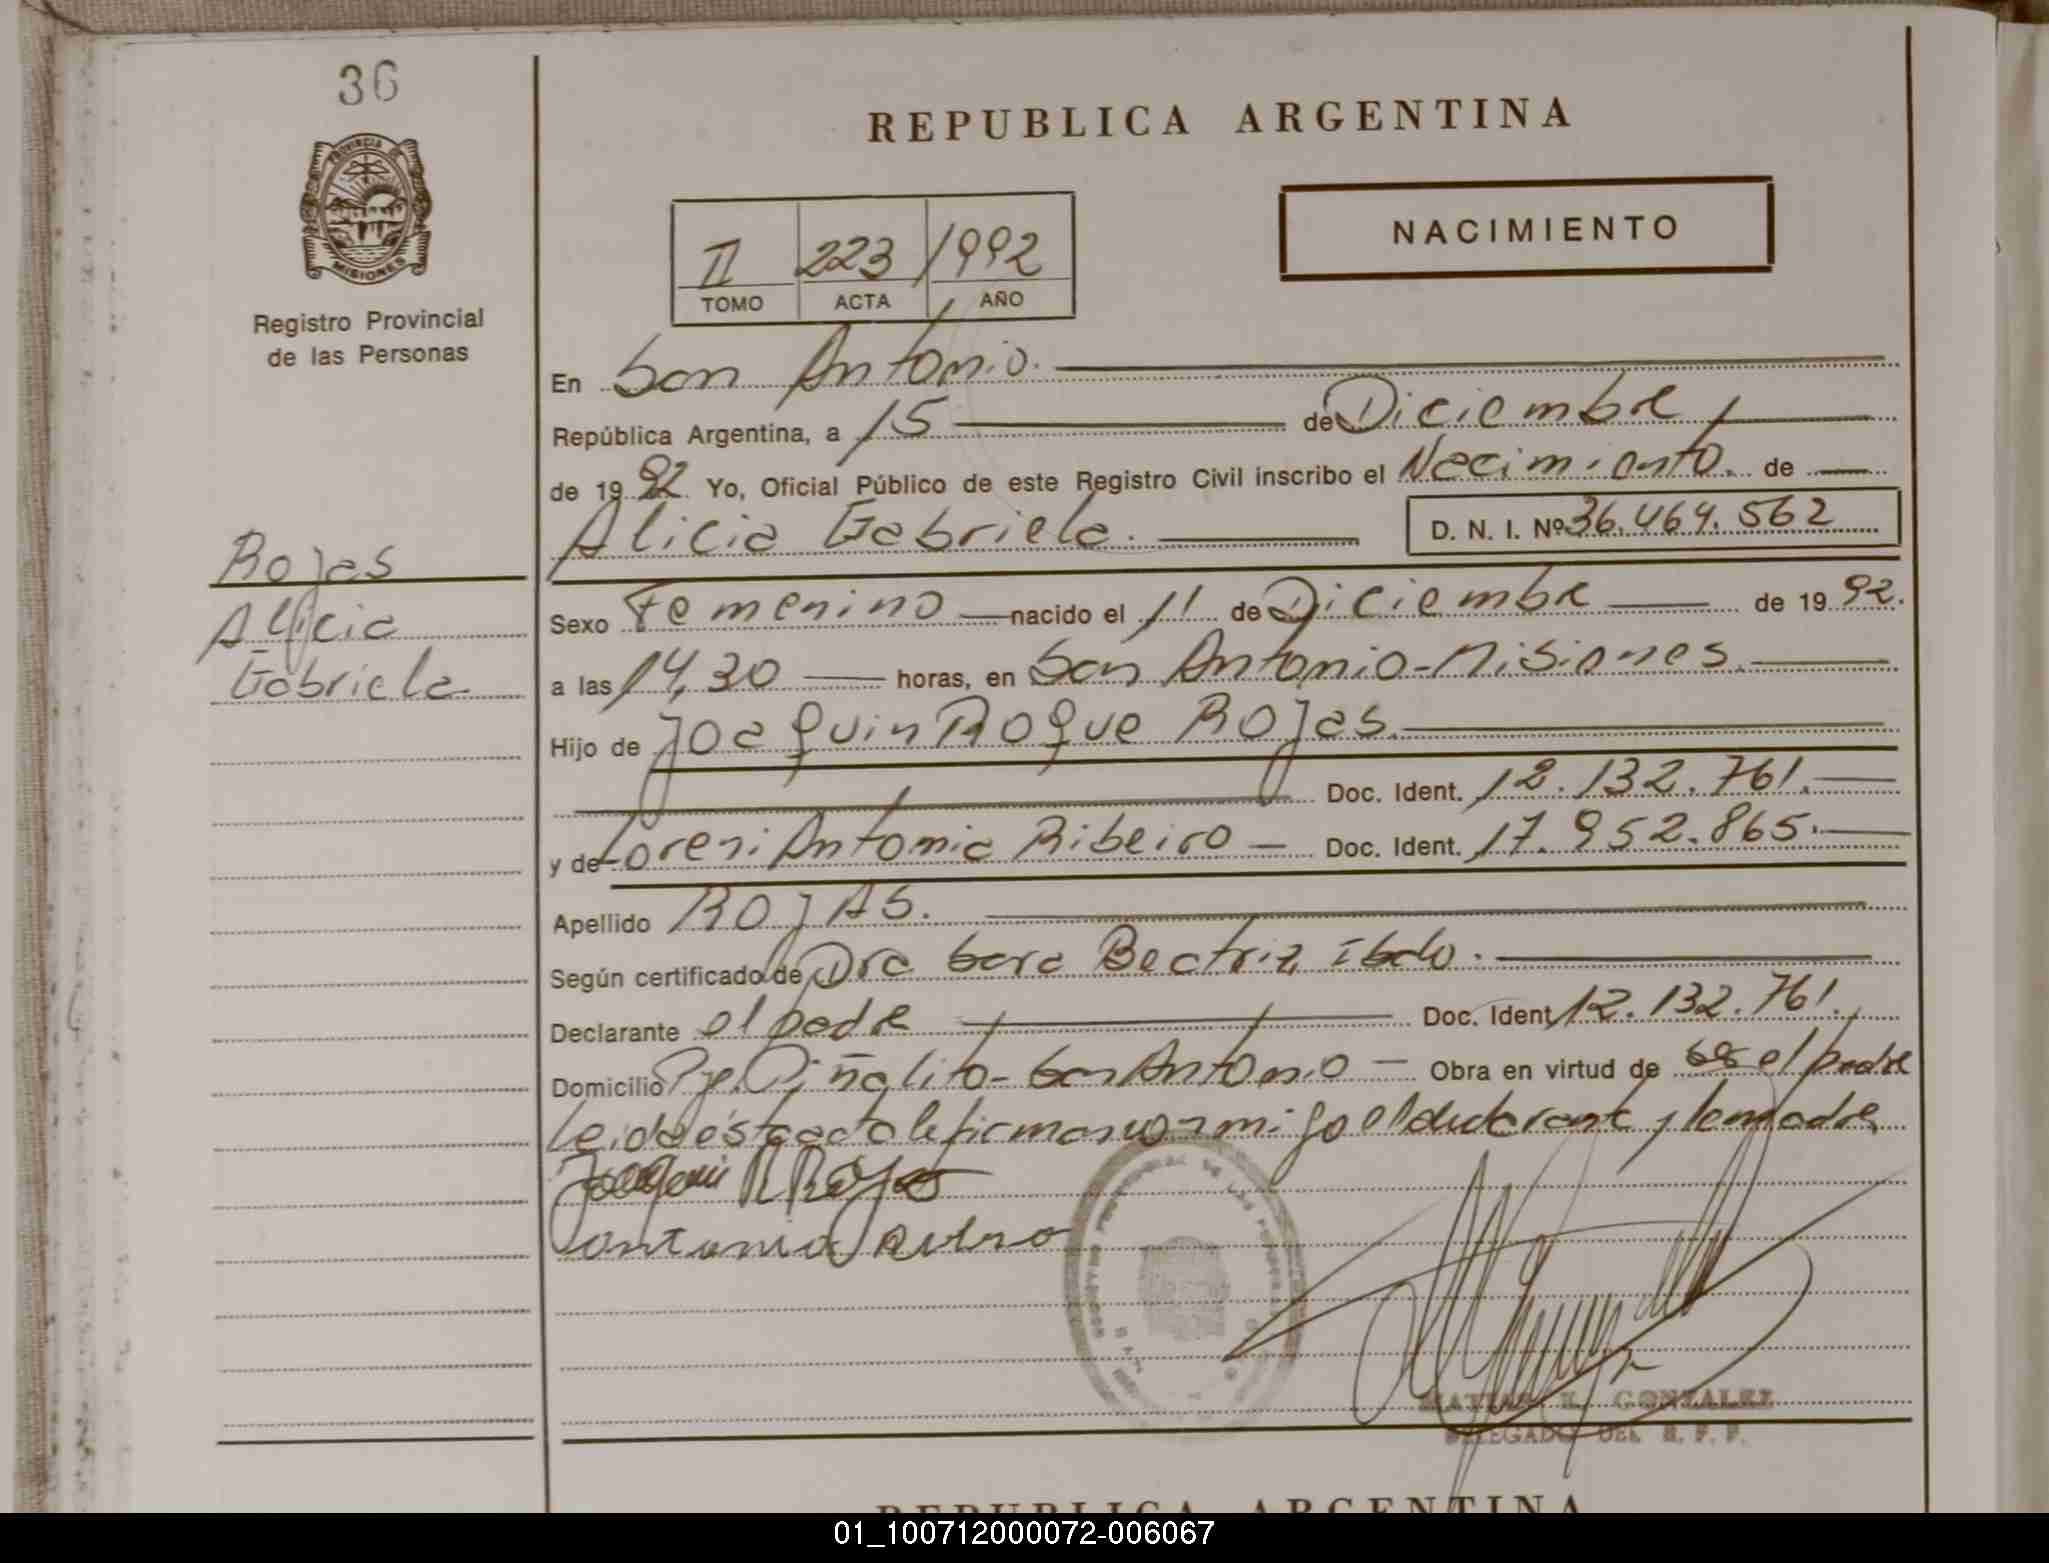 36
REPUBLICA ARGENTINA
PROVINCIA DE
MISIONES
Registro Provincial
de las Personas
NACIMIENTO
II 223 1992
TOMO ACTA AÑO
En San Antonio.
República Argentina, a 15 de Diciembre
de 1992 Yo, Oficial Público de este Registro Civil inscribo el Nacimiento de
Alicia Gabriela. D. N. I. Nº 36.464.562
Rojas
Alicia
Gabriela
Sexo Femenino nacido el 11 de Diciembre de 1992.
a las 14,30 horas, en San Antonio-Misiones.
Hijo de Joaquin Roque Rojas.
Doc. Ident. 12.132.761.
y de Loreni Antonia Ribeiro Doc. Ident. 17.952.865.
Apellido ROJAS.
Según certificado de Dra Sara Beatriz
Declarante el padre Doc. Ident. 12.132.761.
Domicilio Pje. Piñalito-San Antonio Obra en virtud de ser el padre
Leida esta acta la firman conmigo el declarante y la madre
Joaquin R Rojas
Antonia
MATIAS R. GONZALEZ
DELEGADO DEL R. P. P.
REPUBLICA ARGENTINA
01_100712000072-006067